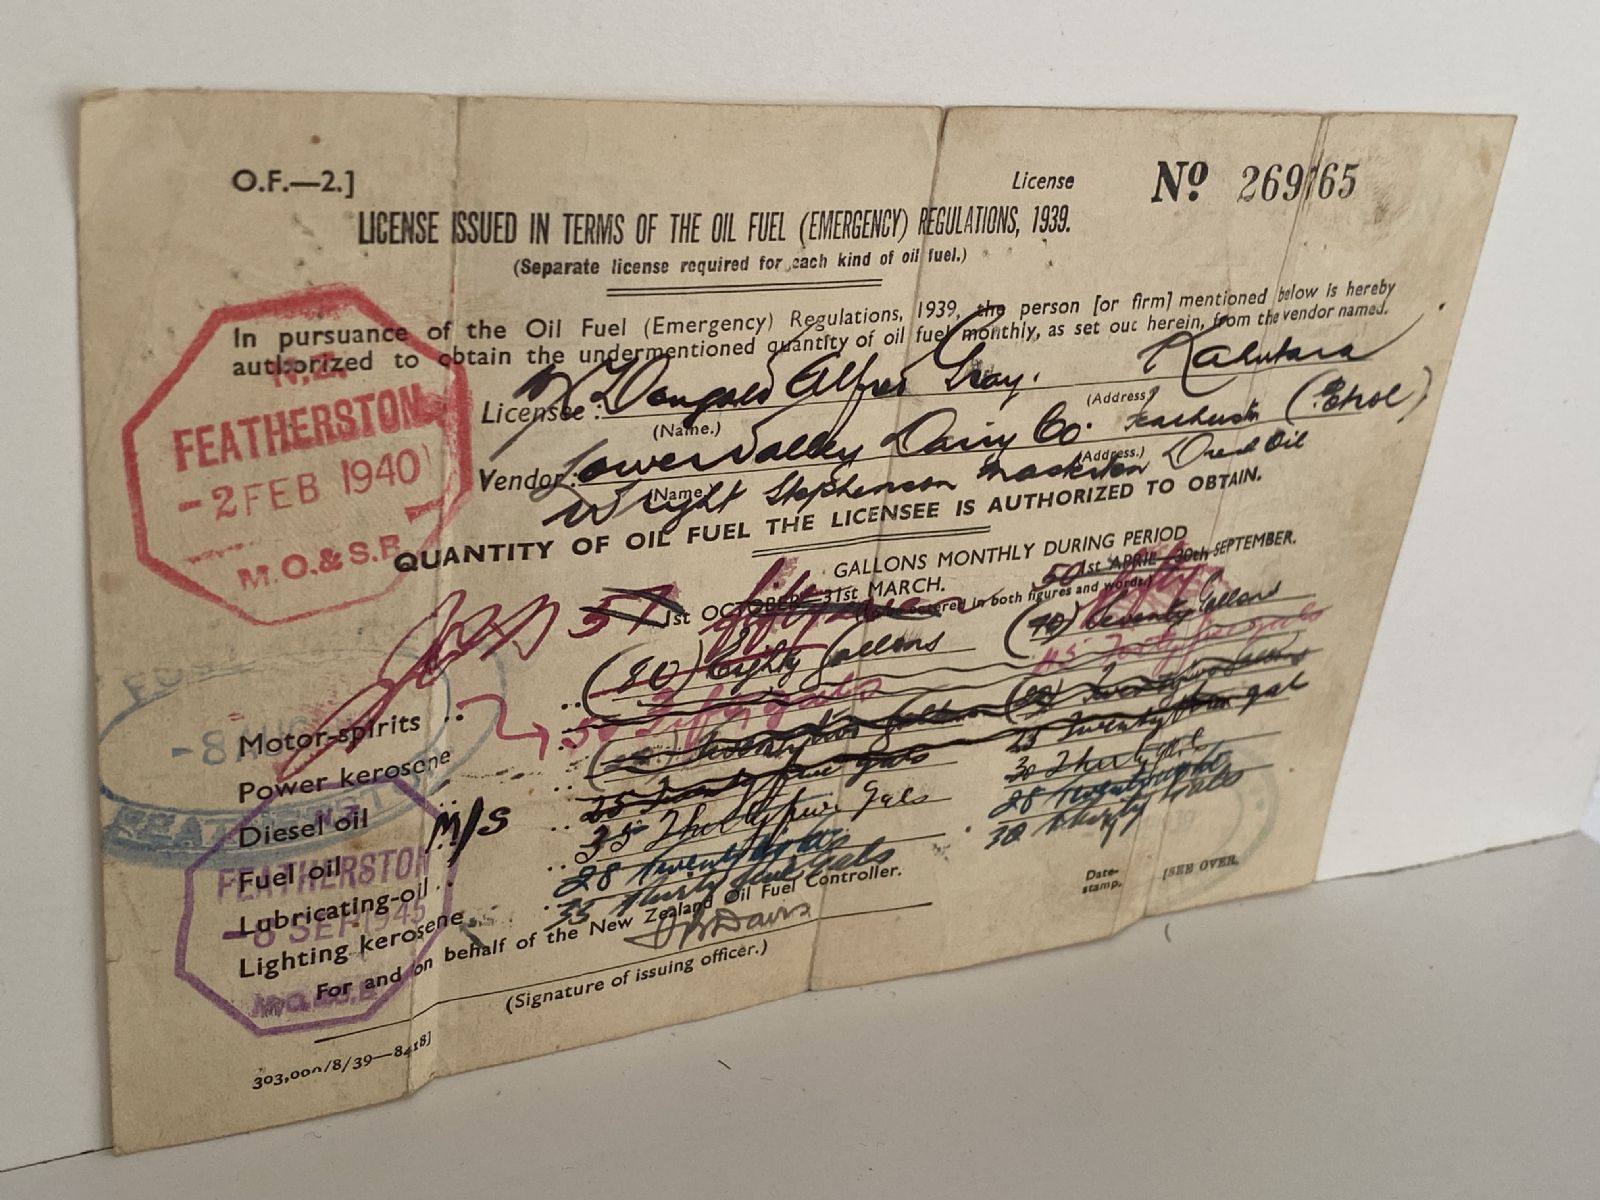 O.F.—2.]
License Nº 269765
LICENSE ISSUED IN TERMS OF THE OIL FUEL (EMERGENCY) REGULATIONS, 1939.
(Separate license required for each kind of oil fuel.)
In pursuance of the Oil Fuel (Emergency) Regulations, 1939, the person [or firm] mentioned below is hereby
authorized to obtain the undermentioned quantity of oil fuel monthly, as set out herein, from the vendor named.
Licensee: Dougald Alfred Gray. Kahutara
(Name.) (Address)
Vendor: Lower Valley Dairy Co. (Petrol)
(Name) (Address.)
Wright Stephenson Masterton Oil
N.Z.
FEATHERSTON
-2 FEB 1940
M.O.&S.B.
QUANTITY OF OIL FUEL THE LICENSEE IS AUTHORIZED TO OBTAIN.
GALLONS MONTHLY DURING PERIOD
1st OCTOBER—31st MARCH. 1st APRIL—30th SEPTEMBER.
(To be entered in both figures and words.)
57 50 fifty
Motor-spirits .. (80) Eighty Gallons (70) Seventy Gallons
50 Fifty gals 45 Forty five gals
Power kerosene Twenty two Gallons Twenty two Gallons
Diesel oil 25 Twenty five gals 25 Twenty five gal
M/S
Fuel oil 35 Thirty five Gals 30 Thirty
Lubricating-oil 28 Twenty eight 28 Twenty eight
Lighting kerosene 35 Thirty five Gals 30 Thirty Gals
-8 AUG
FEATHERSTON
-8 SEP 1945
M.O.&S.B.
For and on behalf of the New Zealand Oil Fuel Controller.
Davis
(Signature of issuing officer.)
Date-
stamp.
[SEE OVER.
303,000/8/39—8418]